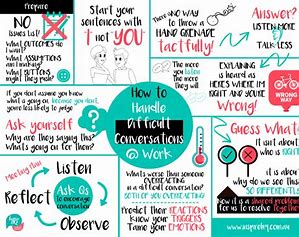 Prepare
NO
issues list!
What OUTCOMES do
I want?
What ASSUMPTIONS
am I making?
What BUTTONS
may they push?
Start your
sentences with
"I" not YOU"
There's NO WAY
to THROW a
HAND GRENADE
tactfully!
Answer?
LISTEN
MORE
TALK
LESS
The more
you listen
the more
they will
EXPLAINING is
heard as
HERE'S WHERE IM
RIGHT AND YOU'RE
Wrong!
WRONG
WAY
If you don't assume you know
what's going on for them
because you don't,
you're less likely to
Ask yourself
Why are they saying this?
What's going on for them?
How to
Handle
Difficult
Conversations
@ Work
Guess What
It isn't
about who
is RIGHT
It is
about
why do we see this
SO DIFFERENTLY
Now it is a shared problem
for us to resolve Together
Meeting Plan
Listen
Reflect
Ask Qs
to encourage
conversation
Observe
What's worse than someone
OVERREACTING
in a difficult conversation?
BOTH OF YOU OVERREACTING!
Predict their REACTIONS
Know your TRIGGERS
Tame your EMOTIONS